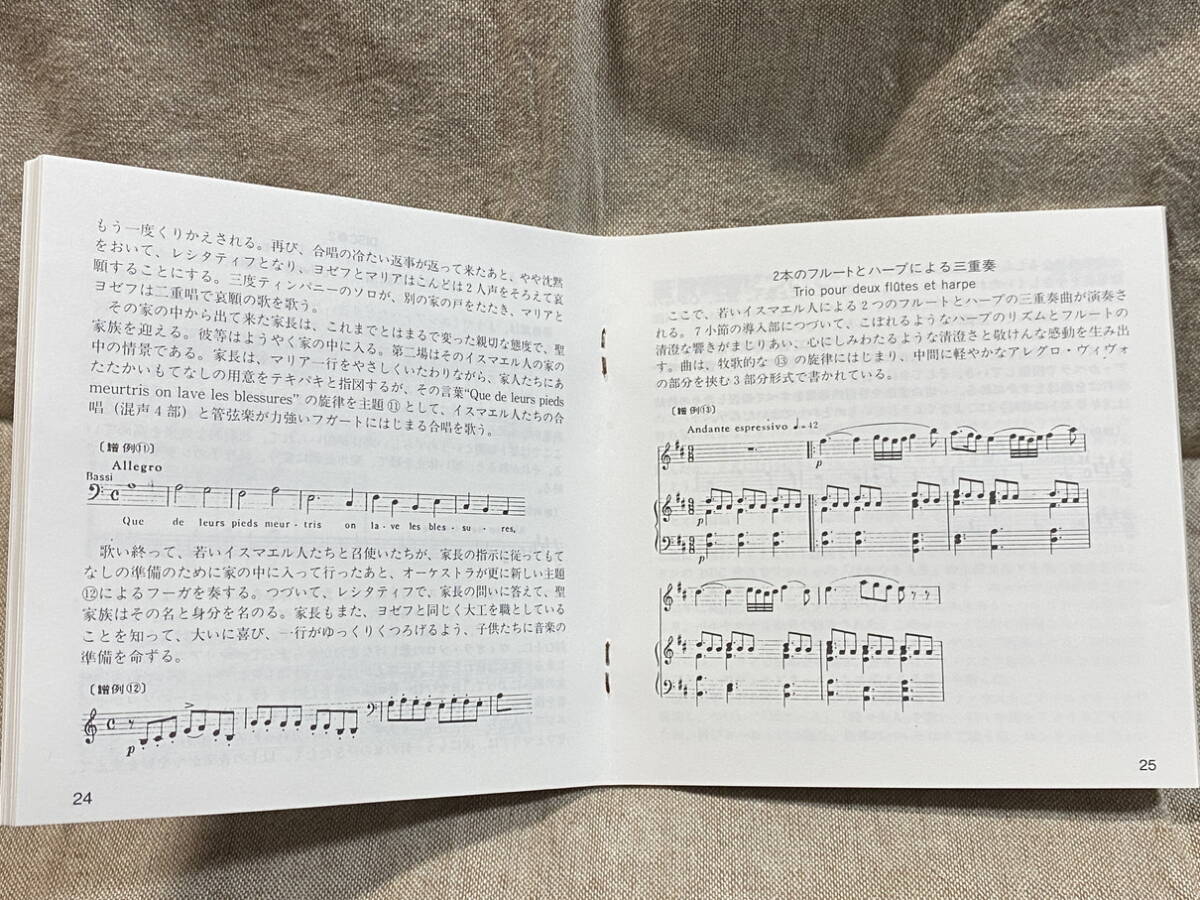 もう一度くりかえされる。再び、合唱の冷たい返事が返って来たあと、やや沈黙
をおいて、レシタティフとなり、ヨゼフとマリアはこんどは2人声をそろえて哀
願することにする。三度ティンパニーのソロが、別の家の戸をたたき、マリアと
ヨゼフは二重唱で哀願の歌を歌う。
その家の中から出て来た家長は、これまでとはまるで変った親切な態度で、聖
家族を迎える。彼等はようやく家の中に入る。第二場はそのイスマエル人の家の
中の情景である。家長は、マリア一行をやさしくいたわりながら、家人たちにあ
たたかいもてなしの用意をテキパキと指図するが、その言葉“Que de leurs pieds
meurtris on lave les blessures” の旋律を主題⑪として、イスマエル人たちの合
唱（混声4部）と管弦楽が力強いフガートにはじまる合唱を歌う。
〔譜例⑪〕
Allegro
Bassi
Que de leurs pieds meur - tris on la - ve les bles - su - res,
歌い終って、若いイスマエル人たちと召使いたちが、家長の指示に従ってもて
なしの準備のために家の中に入って行ったあと、オーケストラが更に新しい主題
⑫によるフーガを奏する。つづいて、レシタティフで、家長の問いに答えて、聖
家族はその名と身分を名のる。家長もまた、ヨゼフと同じく大工を職としている
ことを知って、大いに喜び、一行がゆっくりくつろげるよう、子供たちに音楽の
準備を命ずる。
〔譜例⑫〕
p
24
2本のフルートとハープによる三重奏
Trio pour deux flûtes et harpe
ここで、若いイスマエル人による2つのフルートとハープの三重奏曲が演奏さ
れる。7小節の導入部につづいて、こぼれるようなハープのリズムとフルートの
清澄な響きがまじりあい、心にしみわたるような清澄さと敬けんな感動を生み出
す。曲は、牧歌的な ⑬ の旋律にはじまり、中間に軽やかなアレグロ・ヴィヴォ
の部分を挟む3部分形式で書かれている。
〔譜例⑬〕
Andante espressivo ♩.=42
p
p
25